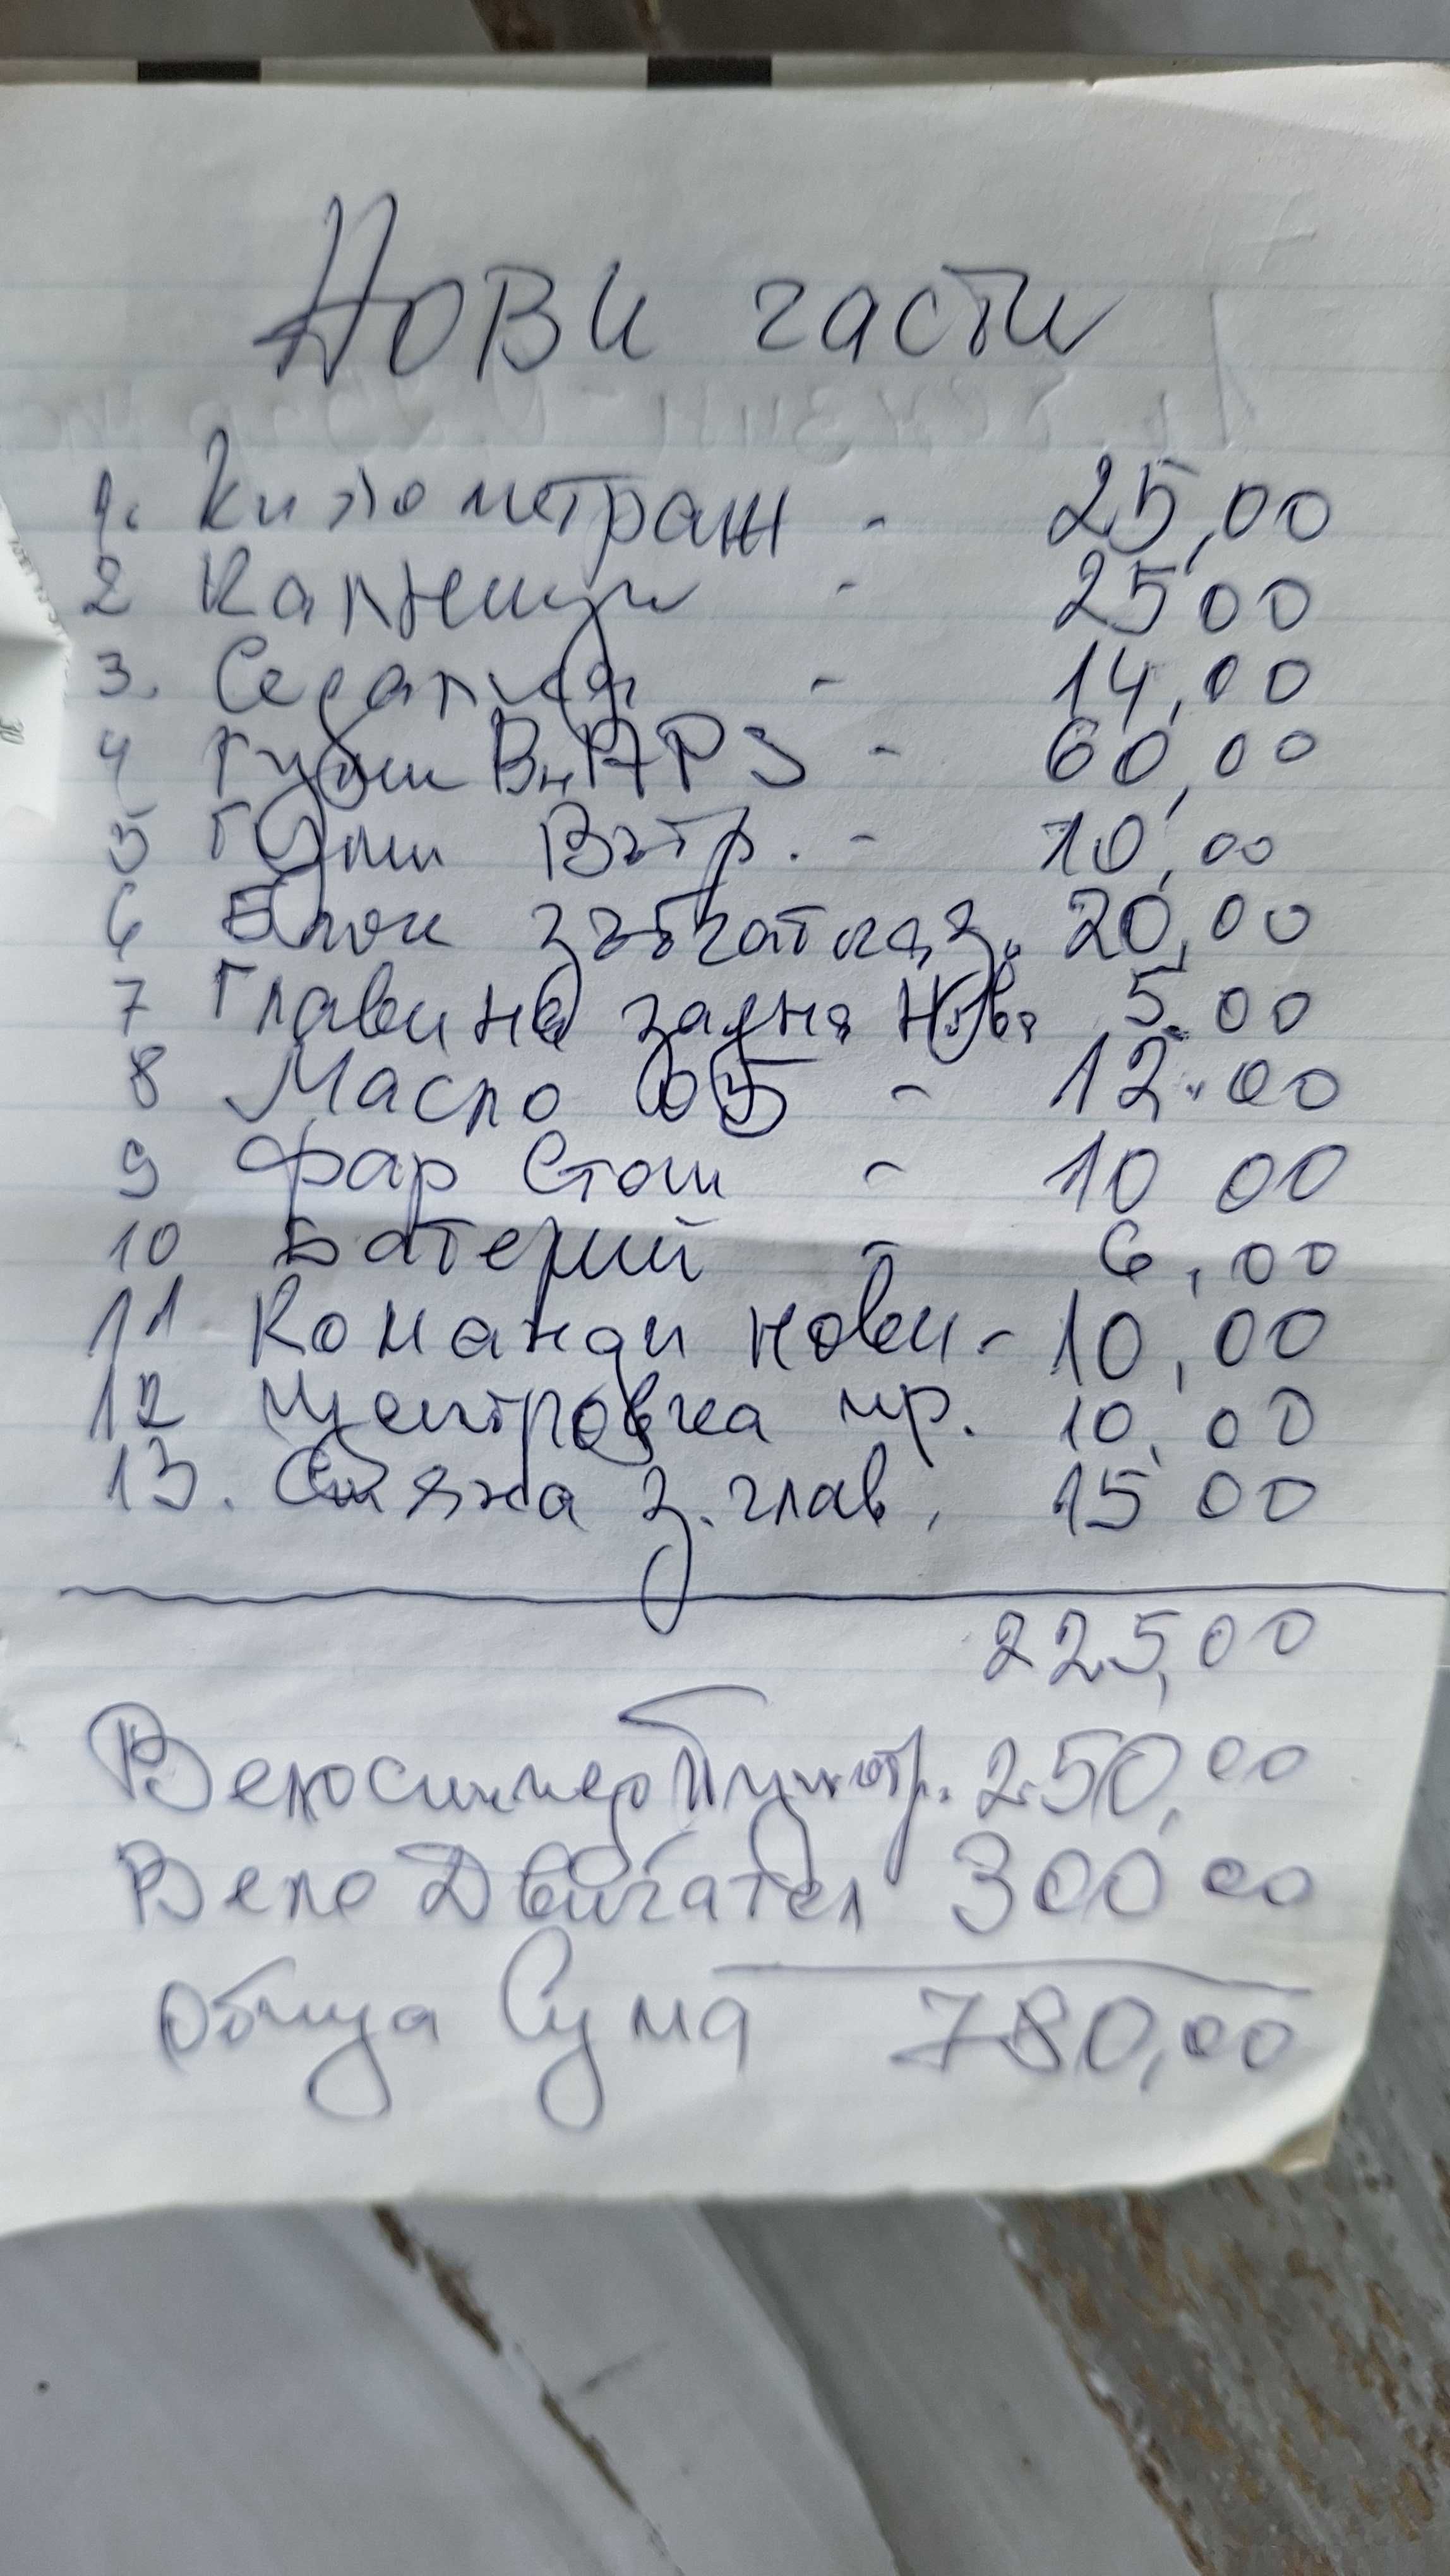 Нови части
1. Километраж - 25,00
2 Калници - 25,00
3. Седалка - 14,00
4 Гуми Вн - 60,00
5 Гуми Вътр. - 10,00
6 Блок зъбчатка з. 20,00
7 Главина задна Нова 5.00
8 Масло - 12.00
9 Фар Стоп - 10 00
10 Батерии - 6,00
11 Команди нови - 10,00
12 Центровка пр. 10,00
13. Стяжка з. глав. 15 00
225,00
Велосипед 250,00
Вело Двигател 300 00
Обща Сума 780,00